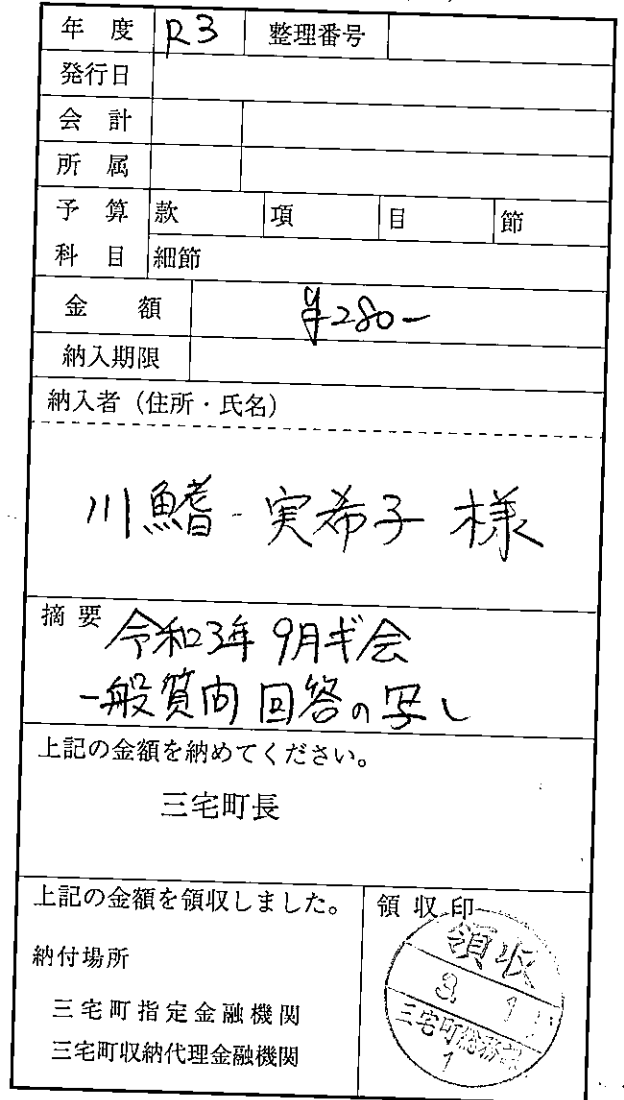 年度 R3 整理番号
発行日
会計
所属
予算 款 項 目 節
科目 細節
金額 ¥280-
納入期限
納入者（住所・氏名）
川鰭 実希子 様
摘要 令和3年 9月ギ会
一般質問 回答の写し
上記の金額を納めてください。
三宅町長
上記の金額を領収しました。
領収印
納付場所
三宅町指定金融機関
三宅町収納代理金融機関
領収
3.
三宅町総務課
1